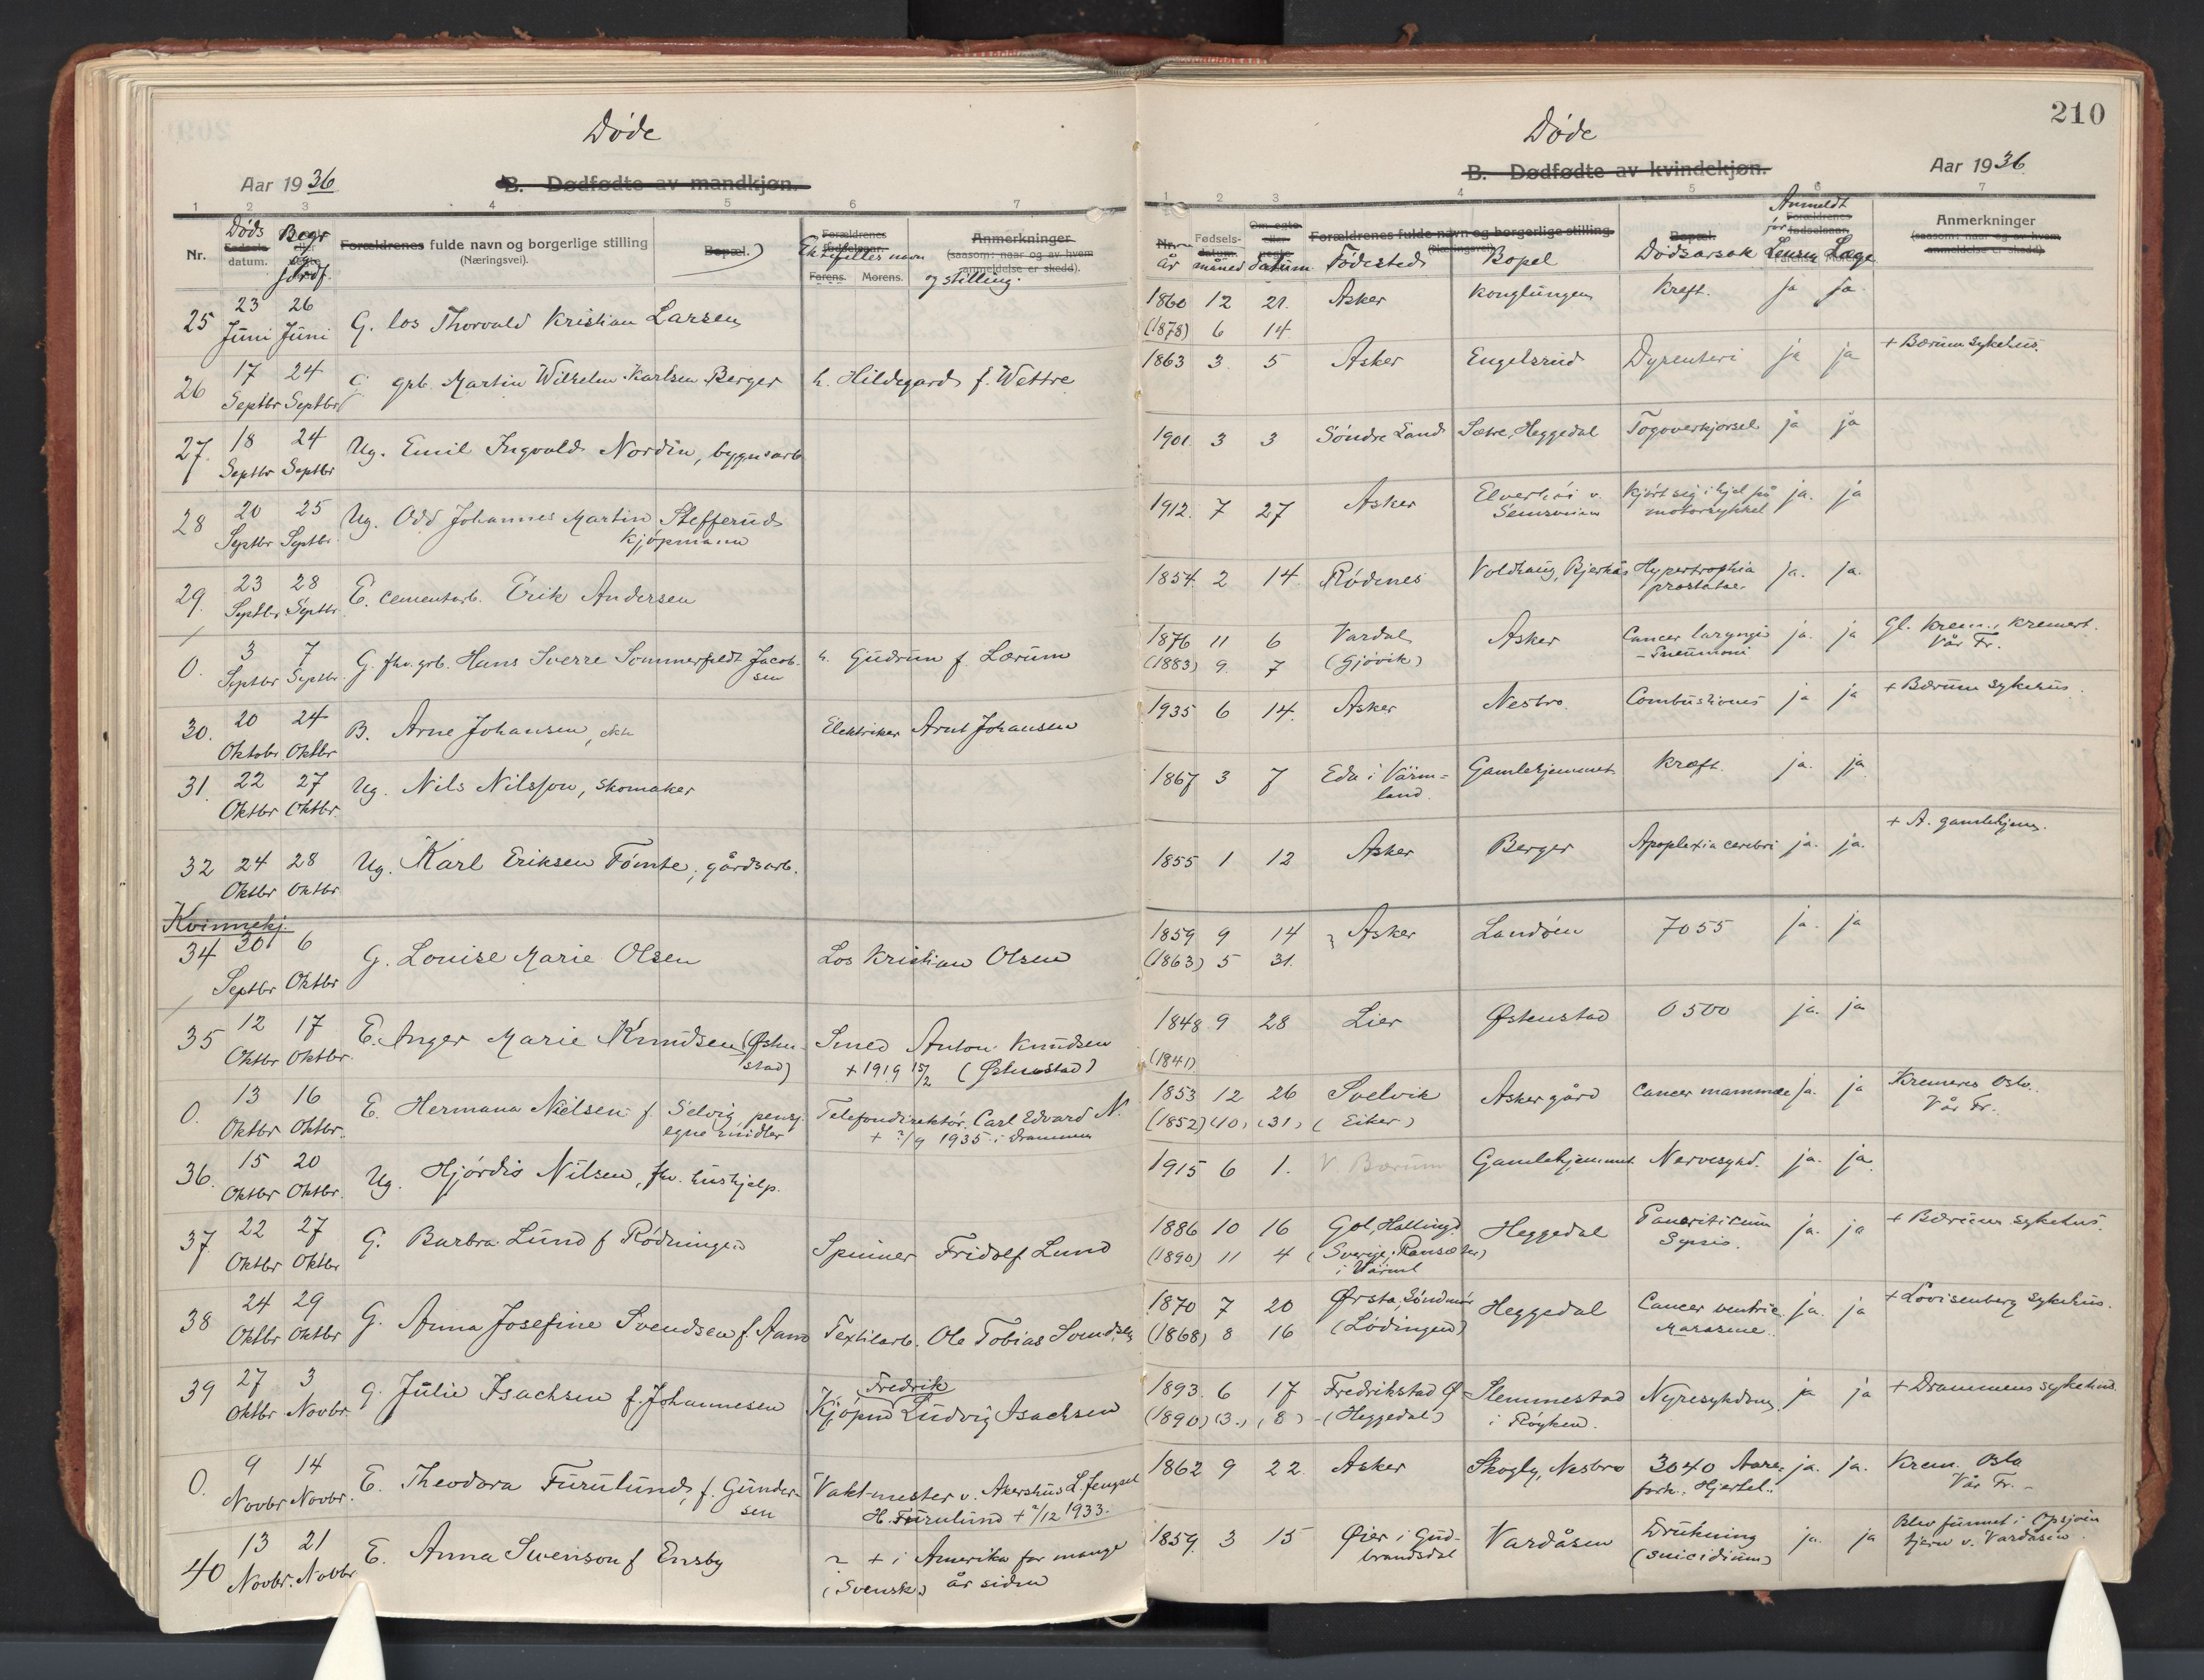 Døde
Aar 1936
B. Dødfødte av mandkjøn.
1 2 3 4 5 6 7
Nr.
Døds
datum.
Begr
Jordf.
Forældrenes fulde navn og borgerlige stilling
(Næringsvei).
Bopæl.
Forældrenes
fødselsaar.
Farens. Morens.
Ektefelles navn
og stilling.
Anmerkninger
(saasom: naar og av hvem
anmeldelse er skedd).
25 23 Juni 26 Juni G. los Thorvald Kristian Larsen
26 17 Septbr 24 Septbr G. grb. Martin Wilhelm Karlsen Berger h. Hildegard f. Wettre
27. 18 Septbr 24 Septbr Ug. Emil Ingvald Nordin, bygnsarb
28 20 Septbr 25 Septbr. Ug. Odd Johannes Martin Stefferud
Kjøpmann
29. 23 Septbr 28 Septbr. E. cementarb. Erik Andersen
0. 3 Septbr 7 Septbr. G. fhv. grb. Hans Sverre Sommerfeldt Jacob-
sen
h. Gudrun f. Lærum
30. 20 Oktobr 24 Oktbr B. Arne Johansen, Elektriker Arnt Johansen
31. 22 Oktbr 27 Oktbr. Ug. Nils Nilsson, skomaker
32 24 Oktbr 28 Oktbr Ug. Karl Eriksen Tømte, gårdsarb.
Kvinnekj.
34 30 Septbr 6 Oktbr G. Louise Marie Olsen Los Kristian Olsen
35 12 Oktbr 17 Oktbr. E. Inger Marie Knudsen (Østen-
stad)
Smed Anton Knudsen
+ 1919 15/2 (Østenstad)
0. 13 Oktbr 16 Oktbr. E. Hermana Nielsen f Selvig pensj.
egne midler
Telefondirektør. Carl Edvard N.
+ 2/9 1935 i Drammen
36. 15 Oktbr 20 Oktbr. Ug. Hjørdis Nilsen, fhv. hushjelp.
37. 22 Oktbr 27 Oktbr G. Barbra Lund f Rødningen Spinner Fridolf Lund
38 24 Oktbr 29 Oktbr G. Anna Josefine Svendsen f. Aam Textilarb. Ole Tobias Svendsen
39 27 Oktbr 3 Novbr. G. Julie Isachsen f. Johannesen Fredrik
Kjøpm Ludvig Isachsen
0. 9 Novbr 14 Novbr. E. Theodora Furulund, f. Gunder-
sen
Vakt-mester v. Akershus L. fengsel
H. Furulund + 2/12 1933.
40 13 Novbr. 21 Novbr E. Anna Swenson f Ensby
+ i Amerika for mange
(Svensk) år siden
Døde
210
B. Dødfødte av kvindekjøn.
Aar 1936
1 2 3 4 5 6 7
Nr.
år
Fødsels-
datum.
måned
Om egte
eller
uegte
datum
Forældrenes fulde navn og borgerlige stilling
(Næringsvei).
Fødested
Bopel
Bopæl.
Dødsarsak
Anmeldt
for
Forældrenes
fødselsaar.
Farens. Morens.
Lensm Læge
Anmerkninger
(saasom: naar og av hvem
anmeldelse er skedd).
1860 12 21. Asker Konglungen Kreft. ja ja.
(1878) 6 14.
1863 3 5 Asker Engelsrud Dysenteri ja ja + Bærum sykehus.
1901. 3 3 Søndre Land Sætre, Heggedal Togoverkjørsel ja ja
1912. 7 27 Asker Elverhøi v.
Semsveien
Kjørt sig ihjel på
motorsykkel
ja. ja
1854. 2 14 Rødenes Voldhaug, Bjerkås Hypertrophia
prostatae.
ja. ja.
1876 11 6 Vardal Asker Cancer laryngis
- Pneumoni
ja. ja Gl. Krem., kremert.
Vår Fr.
(1883) 9. 7 (Gjøvik)
1935 6 14. Asker Nesbro. Combustiones ja ja + Bærum sykehus.
1867 3 7 Eda i Värm-
land.
Gamlehjemmet Kræft. ja. ja
1855 1 12 Asker Berger Apoplexia cerebri ja. ja. + A. gamlehjem.
1859 9 14 Asker Landøen 7055 ja. ja
(1863) 5 31.
1848 9 28 Lier Østenstad 0500 ja. ja
(1841)
1853 12 26 Svelvik Askergård Cancer mammae ja. ja Kremeres Oslo.
Vår Fr.
(1852) (10) (31) (Eiker)
1915 6 1. V. Bærum Gamlehjemmet Nervesykd. ja. ja.
1886 10 16 Gol, Hallingd. Heggedal Sepsis. ja. ja + Bærum sykehus.
(1890) 11 4 (Sverige, Ransäter)
i Värml
1870 7 20 Ørsta, Søndmør Heggedal Cancer ventric.
ja. ja + Lovisenberg sykehus.
(1868) 8 16 (Lødingen)
1893. 6 17 Fredrikstad Ø Slemmestad
i Røyken.
Nyresykdom ja ja + Drammens sykehus.
(1890) (3.) (8) (Heggedal)
1862 9 22. Asker Skogly, Nesbro 3040 Aare-
fork. Hjertel.
ja. ja. Krem. Oslo
Vår Fr. -
1859. 3 15 Øier i Gud-
brandsdal
Vardåsen Drukning
(suicidium)
ja. ja Blev funnet i Opsjøen
tjern v. Vardåsen